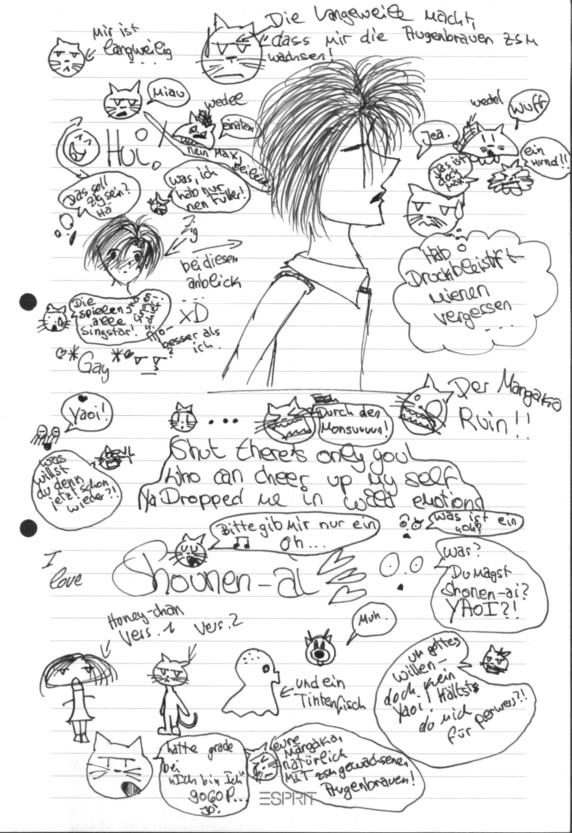 Mir ist
langweilig
Die Langeweile macht,
dass mir die Augenbrauen zsm
wachsen!
Miau
wedel
einatem
nein Max,
Hui,
Was ich
hab nur
nen Füller!
Das soll
Hä
wedel
Wuff
Jea.
Das ist
doch
ein
Hund!!
Hab
Druckbleistift-
mienen
vergessen
...
bei diesem
anblick
...
Die
spielen
alle
Singstar!
xD
besser als
ich
Gay
Yaoi!
...
Durch den
Monsuuun!
Der Mangaka
Ruin!!
Was
willst
du denn
jetzt schon
wieder?!
Shut there's only you!
Who can cheer up my self
Dropped me in wild emotions
Bitte gib mir nur ein
Oh...
Was ist ein
ooh?
I
love
Shounen-ai
Was?
Du magst
Shonen-ai?
YAOI?!
Honey-chan
Vers. 1 Vers. 2
Muh.
und ein
Tintenfisch
um gottes
willen-
doch kein
Yaoi! Hältst
du mich
für pervers?!
hatte grade
bei
"Ich bin Ich"
90GOP...
JO!
eure
Mangaka,
natürlich
MIT zsmgewachsenen
Augenbrauen!
ESPRIT